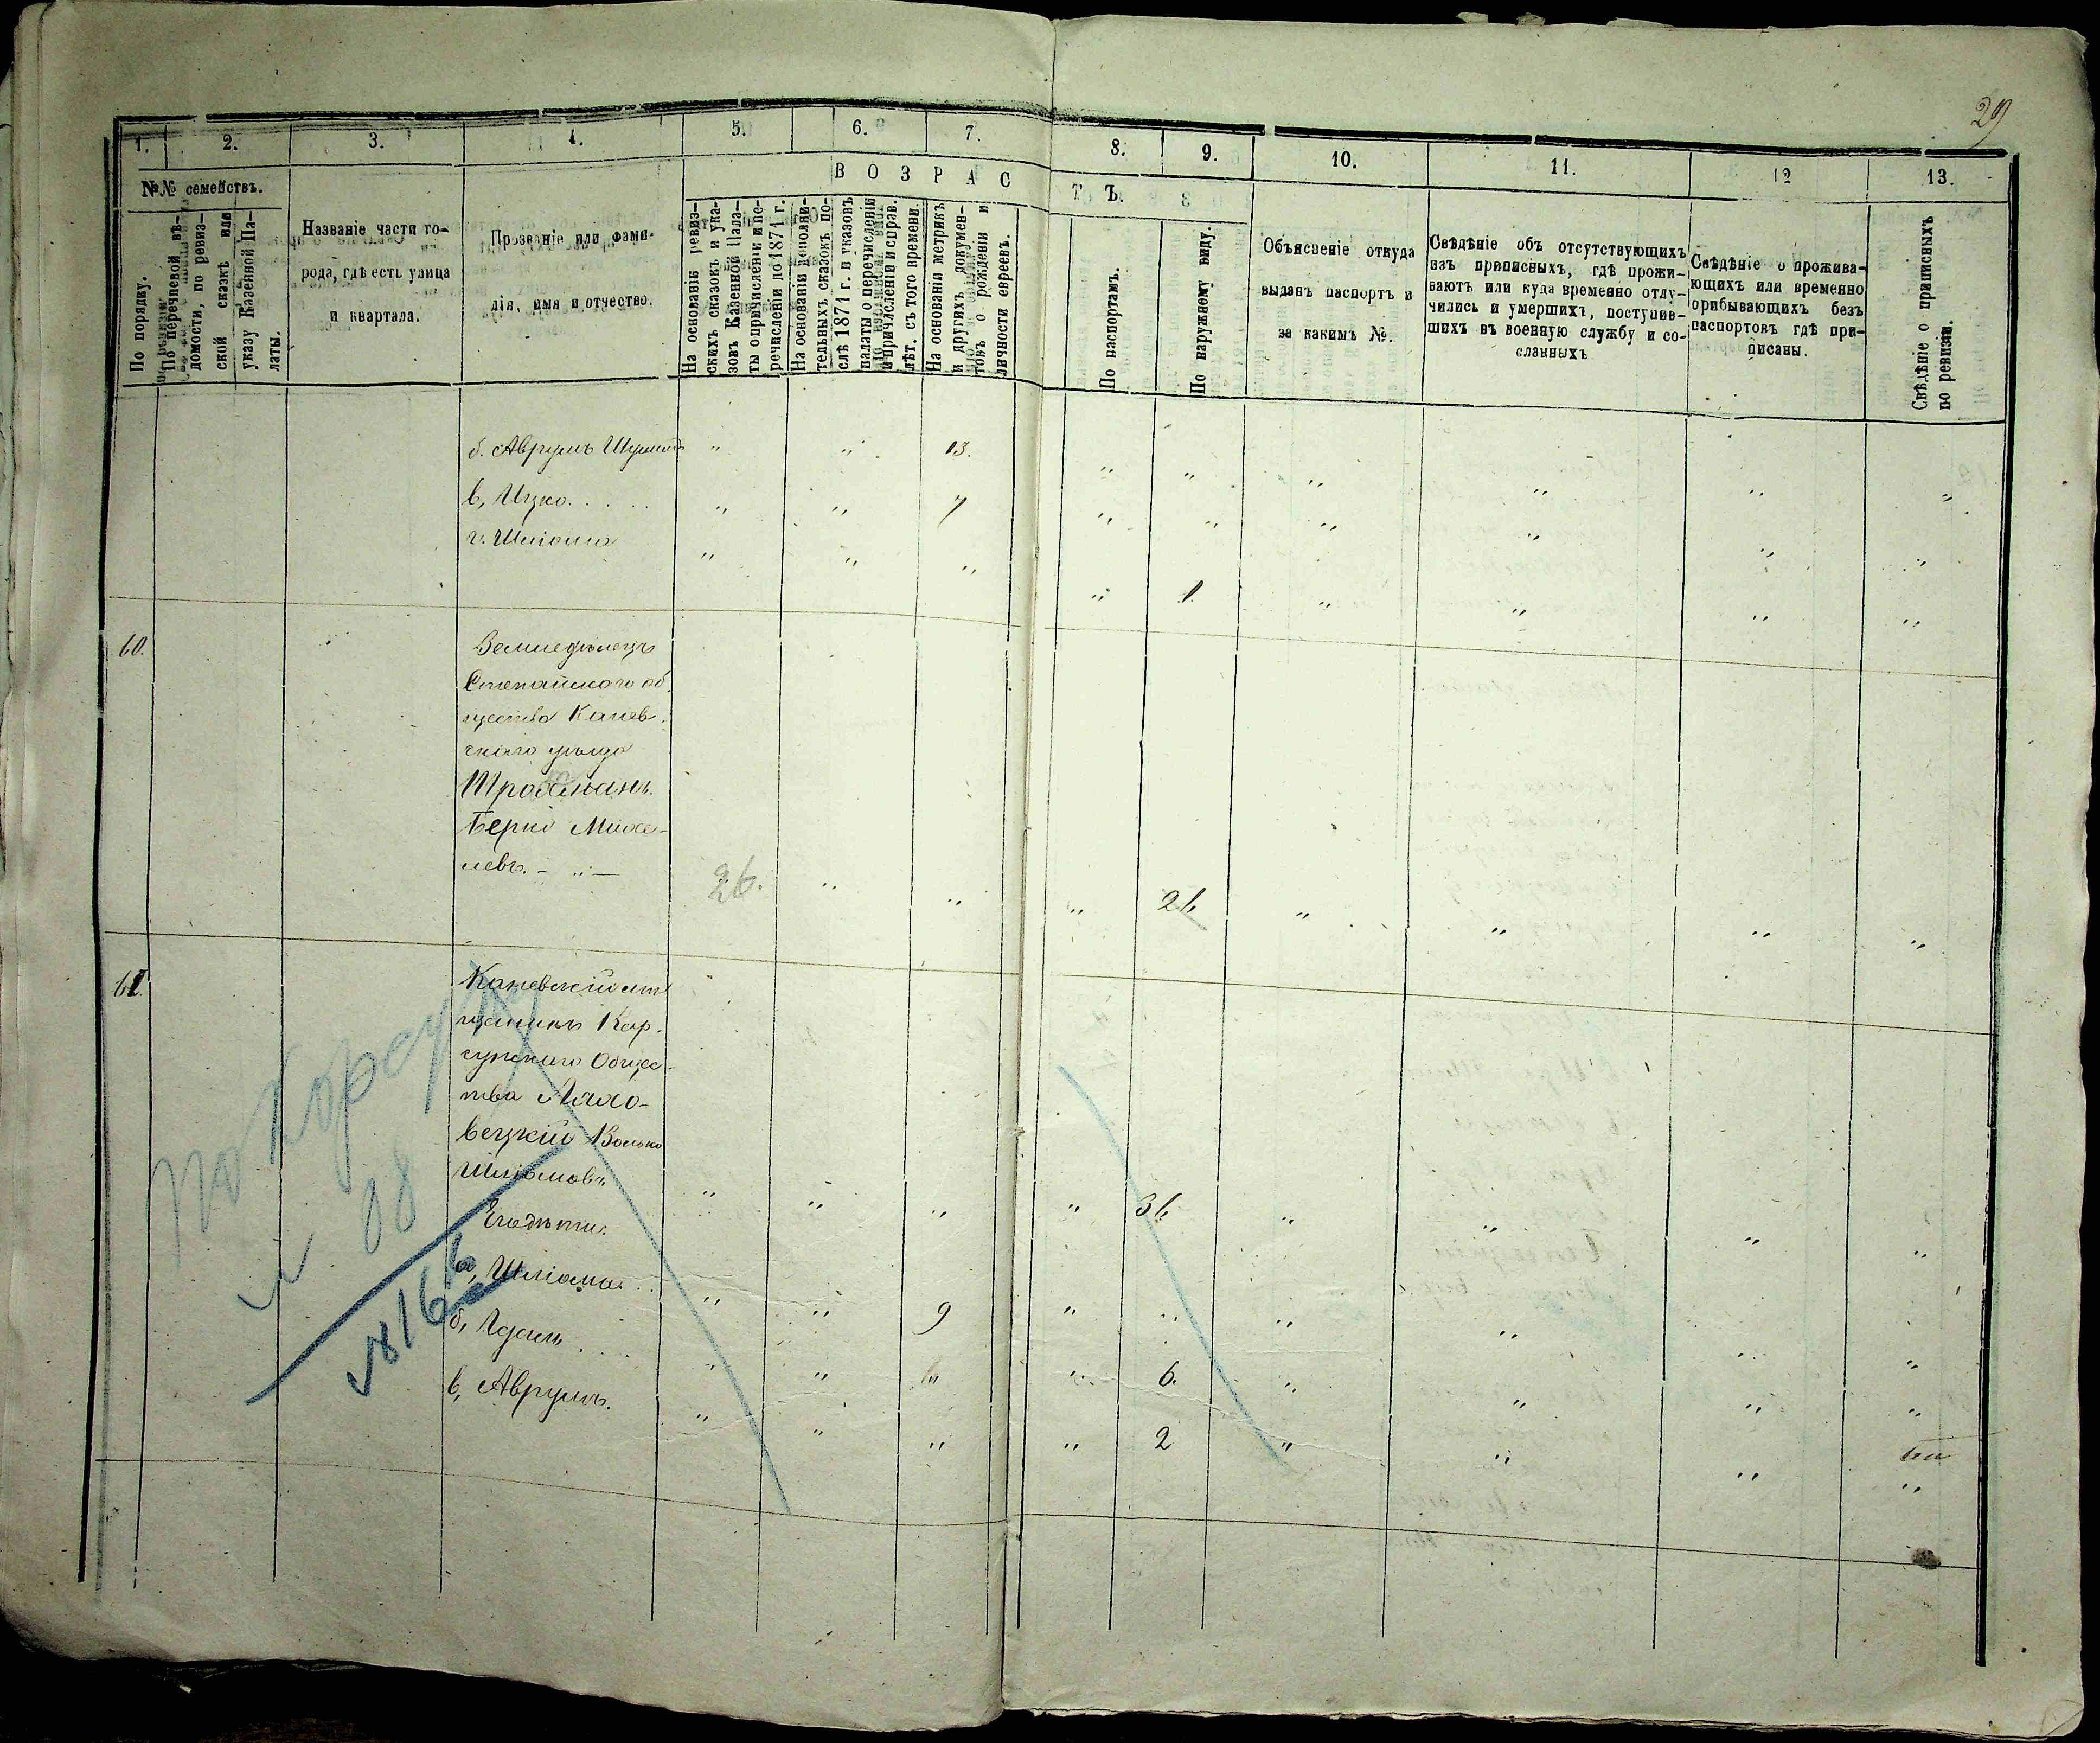 29
1. 2. 3. 4. 5. 6. 7. 8. 9. 10. 11. 12 13.
№№ семействъ.
По порядку.
По перечневой вѣ-
домости, по ревиз-
ской сказкѣ или
указу Казенной Па-
латы.
Названіе части го-
рода, гдѣ есть улица
и квартала.
Прозваніе или фами-
лія, имя и отчество.
ВОЗРАСТЪ.
На основаніи ревиз-
скихъ сказокъ и ука-
зовъ Казенной Пала-
ты о причисленіи и пе-
речисленіи до 1871 г.
На основаніи дополни-
тельныхъ сказокъ по-
слѣ 1871 г. и указовъ
палаты о перечисленіи
и причисленіи и справ.
лѣт. съ того времени.
На основаніи метрикъ
и другихъ докумен-
товъ о рожденіи и
личности евреевъ.
По паспортамъ.
По наружному виду.
Объясненіе откуда
выданъ паспортъ и
за какимъ №.
Свѣдѣніе объ отсутствующихъ
изъ приписныхъ, гдѣ прожи-
ваютъ или куда временно отлу-
чились и умершихъ, поступив-
шихъ въ военную службу и со-
сланныхъ
Свѣдѣніе о прожива-
ющихъ или временно
прибывающихъ безъ
паспортовъ гдѣ при-
писаны.
Свѣдѣніе о приписныхъ
по ревизіи.
б. Аврумъ " " 13. " " " " " "
в, Ицко. . . . . " " 7 " " " " " "
г. Шліома " " " " 1. " " " "
60.
Земледѣлецъ
об
щества Канев
скаго уѣзда
Берко
левъ. - " - 26. " " " 26 " " " "
61.
Каневскій
щанинъ Кор-
сунскаго Общес-
тва
вецкій Волько
Шліомовъ " " " " 36 " " " "
Его дѣти.
а, Шліома. . . " " 9 " " " " " "
б, . . . " " " " 6. " " " "
в, Аврумъ. " " " " 2 " " " "
по Корсуну